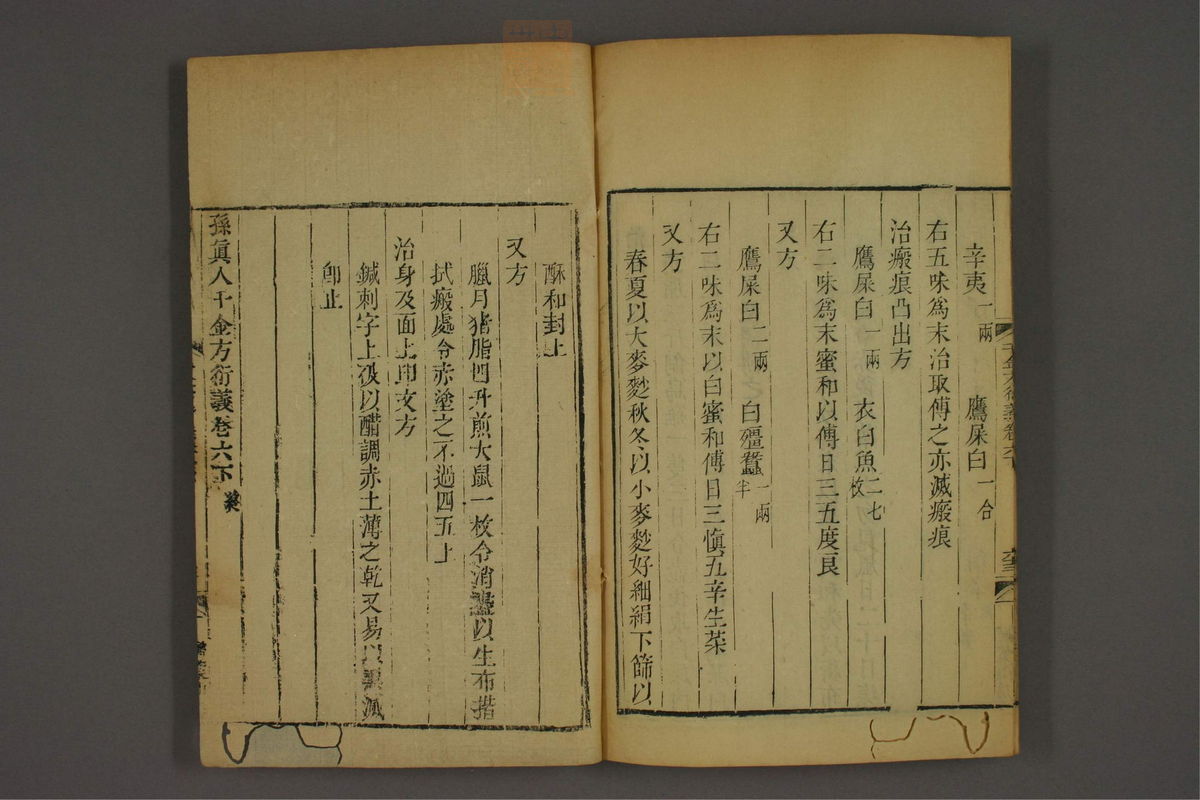 辛夷一兩 鷹屎白一合
右五味爲末治取傅之亦滅瘢痕
治瘢痕凸出方
鷹屎白一兩 衣白魚二七枚
右二味爲末蜜和以傅日三五度良
又方
鷹屎白二兩 白殭蠶一兩半
右二味爲末以白蜜和傅日三愼五辛生菜
又方
春夏以大麥麨秋冬以小麥麨好細絹下篩以
酥和封上
又方
臘月猪脂四升煎大鼠一枚令消盡以生布揩
拭瘢處令赤塗之不過四五上
治身及面上印文方
鍼刺字上破以醋調赤土薄之乾又易以黑滅
卽止
孫眞人千金方衍義卷六下終